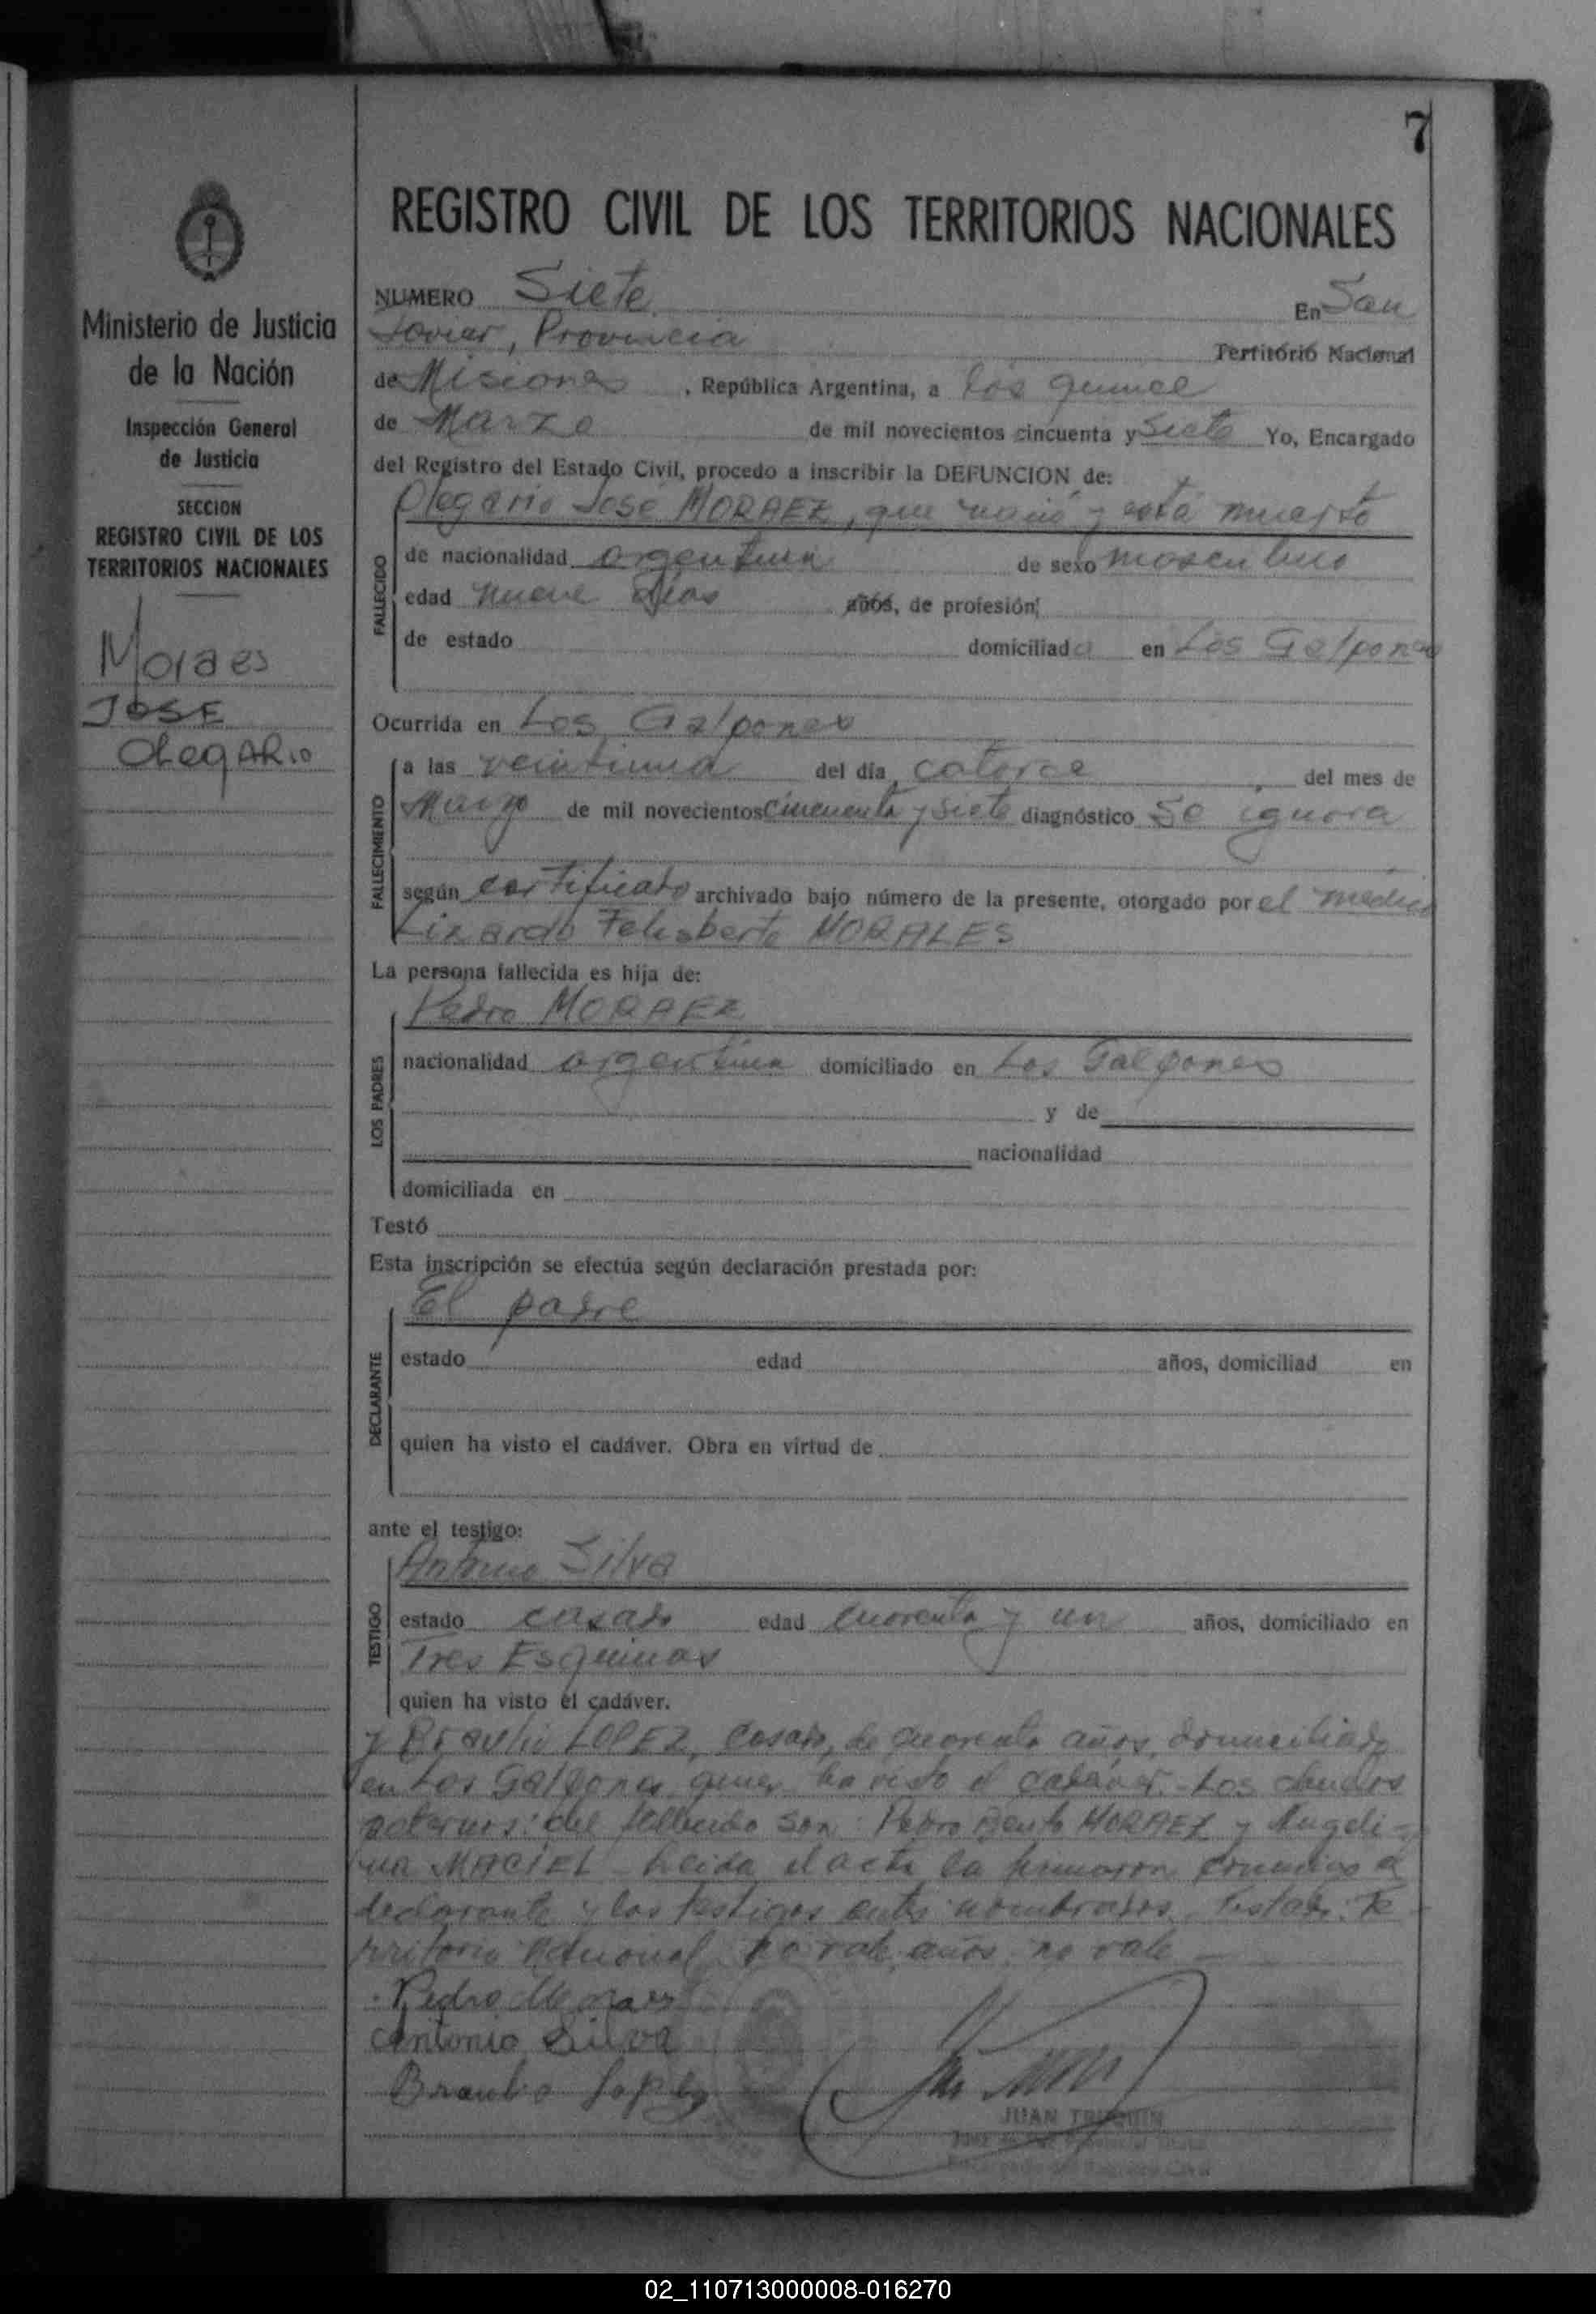 7
REGISTRO CIVIL DE LOS TERRITORIOS NACIONALES
Ministerio de Justicia
de la Nación
Inspección General
de Justicia
SECCION
REGISTRO CIVIL DE LOS
TERRITORIOS NACIONALES
Moraes
JOSE
OlegARio
NUMERO Siete En San
Javier, Provincia Territorio Nacional
de Misiones , República Argentina, a los quince
de Marzo de mil novecientos cincuenta y siete Yo, Encargado
del Registro del Estado Civil, procedo a inscribir la DEFUNCION de:
Olegario José MORAEZ, que y está muerto
FALLECIDO
de nacionalidad argentina de sexo masculino
edad nueve días años, de profesión
de estado domiciliado en Los Galpones
Ocurrida en Los Galpones
FALLECIMIENTO
a las veintiuna del día catorce , del mes de
Marzo de mil novecientos cincuenta y siete diagnóstico Se ignora
según certificado archivado bajo número de la presente, otorgado por el médico
Lizardo Felisberto MORALES
La persona fallecida es hija de:
LOS PADRES
Pedro MORAEZ
nacionalidad argentina domiciliado en Los Galpones
y de
nacionalidad
domiciliada en
Testó
Esta inscripción se efectúa según declaración prestada por:
DECLARANTE
El padre
estado edad años, domiciliad en
quien ha visto el cadáver. Obra en virtud de
ante el testigo:
TESTIGO
Antonio Silva
estado casado edad cuarenta y un años, domiciliado en
Tres Esquinas
quien ha visto el cadáver.
y Braulio LOPEZ, casado, de cuarenta años, domiciliado
en Los Galpones quien ha visto el cadáver. Los abuelos
paternos del fallecido son: Pedro Bento MORAEZ y Angeli-
na MACIEL. Leída el acta la firmaron conmigo el
declarante y los testigos antes nombrados. Testado: Te-
rritorio Nacional no vale años: no vale
Pedro Moraes
Antonio Silva
Braulio Lopez
JUAN
02_110713000008-016270